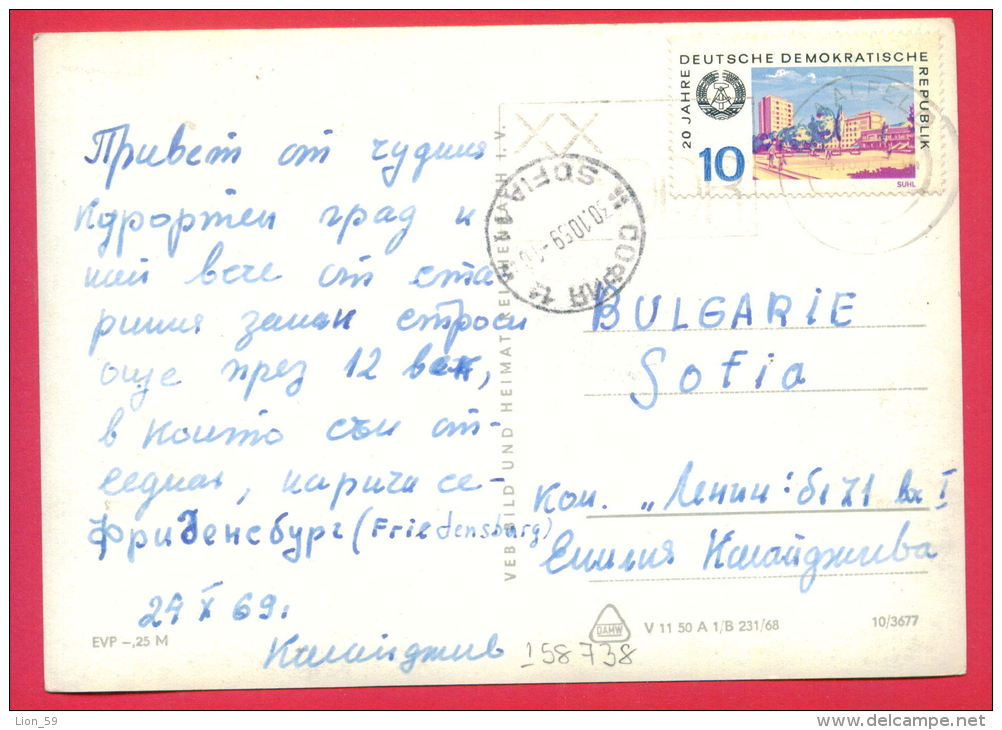 20 JAHRE DEUTSCHE DEMOKRATISCHE REPUBLIK
10
SUHL
SOFIA
СОФИЯ
30.10.69
Привет от чудния
курортен град и
най вече от ста
риния замък строен
още през 12 век,
в който съм от-
седнал, нарича се-
Фриденсбург (Friedensburg)
24 X 69.
Калайджиев
BULGARIE
Sofia
Ком. „Ленин: бл 71 вх I
Емилия Калайджиева
VEB BILD UND HEIMAT REICHENBACH I. V.
EVP -,25 M
DAMW
V 11 50 A 1/B 231/68
10/3677
158738
Lion_59
http://www.delcampe.net